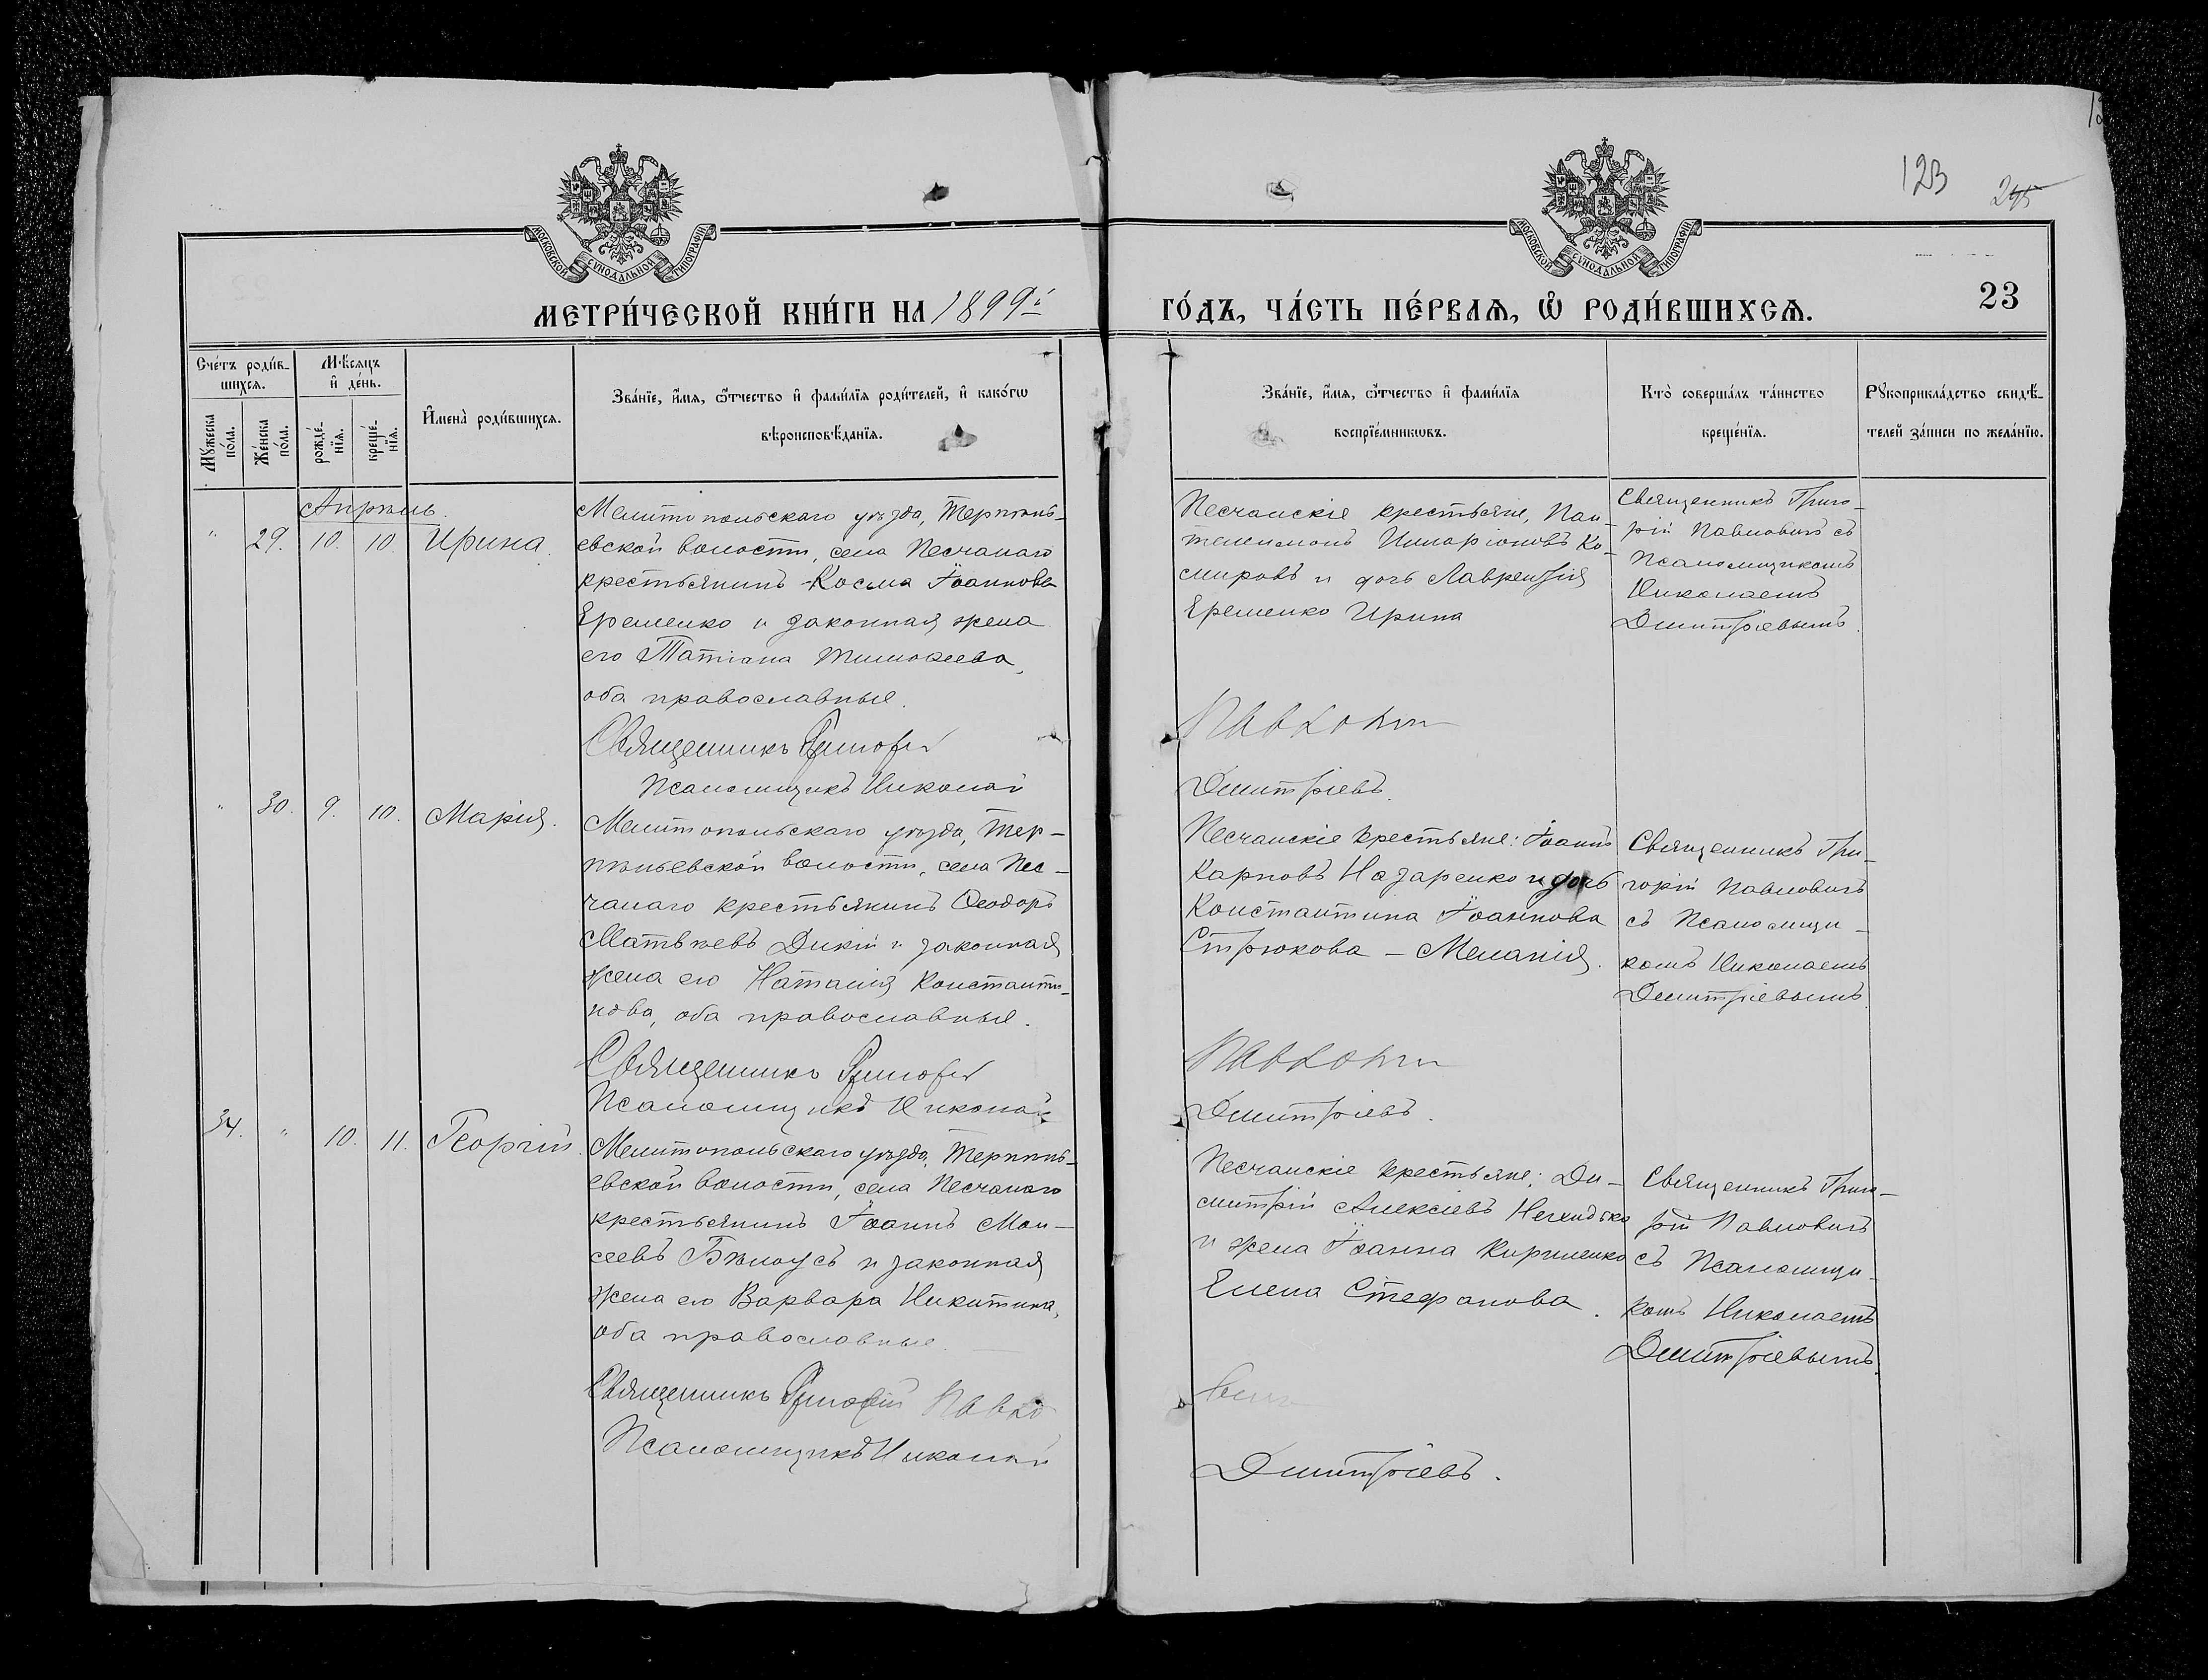 123
295
МОСКОВСКОЙ СѴНОДАЛЬНОЙ ТИПОГРАФІИ
МОСКОВСКОЙ СѴНОДАЛЬНОЙ ТИПОГРАФІИ
МЕТРИ́ЧЕСКОЙ КНИ́ГИ НА 1899й
ГО́ДЪ, ЧА́СТЬ ПЕ́РВАѦ, Ѽ РОДИ́ВШИХСѦ.
23
Сче́тъ роди́в-
шихсѧ.
Мꙋ́жеска по́ла.
Же́нска по́ла.
М҆ѣ́сѧцъ
и҆ де́нь.
рожде́-
нїѧ.
креще́-
нїѧ.
И҆мена̀ роди́вшихсѧ.
Зва́нїе, и҆́мѧ, ѻ҆́тчество и҆ фами́лїѧ роди́телей, и҆ како́гѡ
вѣроисповѣ́данїѧ.
Зва́нїе, и҆́мѧ, ѻ҆́тчество и҆ фами́лїѧ
воспрїе́мникѡвъ.
Кто̀ соверша́лъ та́инство
креще́нїѧ.
Рꙋкоприкла́дство свидѣ́-
телей за́писи по жела́нїю.
Апрѣль.
" 29. 10. 10. Ирина.
Мелитопольскаго уѣзда, Терпѣнь-
евской волости, села Песчанаго
крестьянинъ Косма Іоанновъ
Еременко и законная жена
его Татіана Тимоѳеева,
оба православные.
Священникъ Григорій
Псаломщикъ Николай
Песчанскіе крестьяне, Пан-
телеимонъ Иларіоновъ Ко-
мировъ и дочь Лаврентія
Еременко Ирина
Павловичъ
Дмитріевъ.
Священникъ Григо-
рій Павловичъ съ
Псаломщикомъ
Николаемъ
Дмитріевымъ.
" 30. 9. 10. Марія.
Мелитопольскаго уѣзда, Тер-
пѣньевской волости, села Пес-
чанаго крестьянинъ Ѳеодоръ
Матвѣевъ Дикій и законная
жена его Наталія Константи-
нова, оба православные.
Священникъ Григорій
Псаломщикъ Николай
Песчанскіе крестьяне: Іоаннъ
Карповъ Назаренко и дочь
Константина Іоаннова
Стрюкова - Меланія.
Павловичъ
Дмитріевъ.
Священникъ Гри-
горій Павловичъ
съ Псаломщи-
комъ Николаемъ
Дмитріевымъ.
34. " 10. 11. Георгій.
Мелитопольскаго уѣзда, Терпѣнь-
евской волости, села Песчанаго
крестьянинъ Іоаннъ Мои-
сеевъ Бѣлоусъ и законная
жена его Варвара Никитина,
оба православные.
Священникъ Григорій Павло
Псаломщикъ Николай
Песчанскіе крестьяне: Ди-
митрій Алексіевъ
и жена Іоанна Кириленко
Елена Стефанова.
вичъ
Дмитріевъ.
Священникъ Григо-
рій Павловичъ
съ Псаломщи-
комъ Николаемъ
Дмитріевымъ.